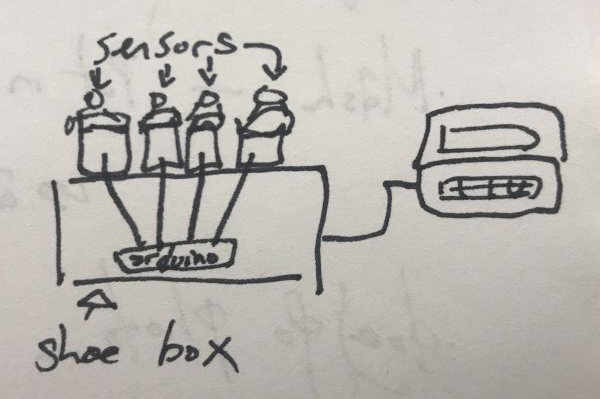 sensors
arduino
shoe box